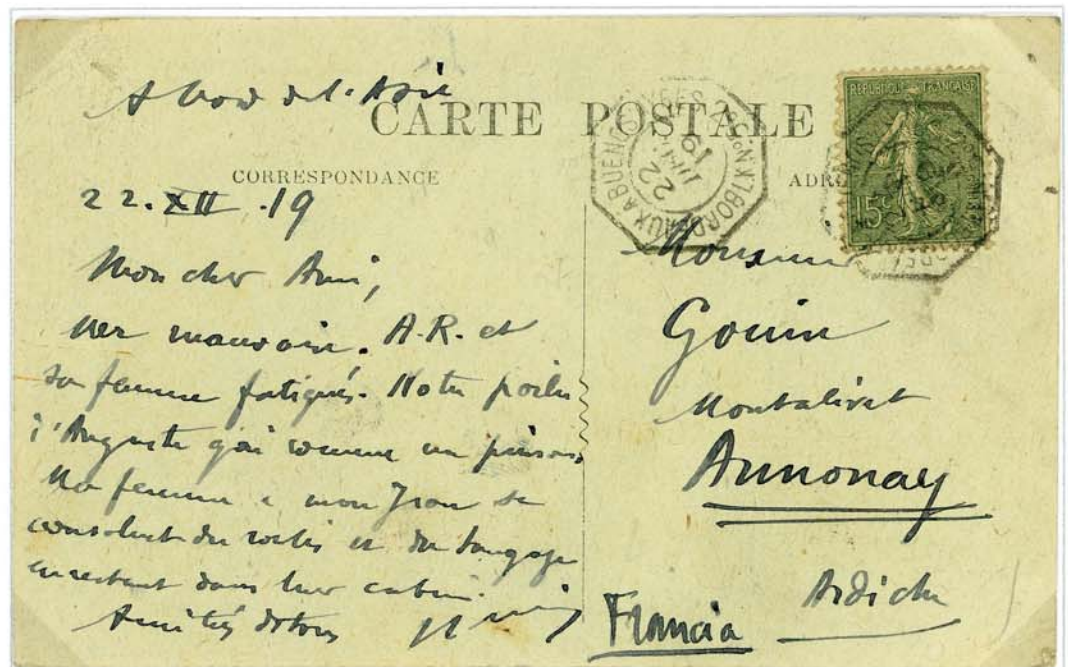 A bord de l'Asie
CARTE POSTALE
CORRESPONDANCE
22.XII.19
Mon cher Ami,
Mer mauvaise. A.R. et
sa femme fatigués. Notre poilu
d'Auguste gai comme un pinson.
Ma femme & mon Jean se
consolent du roulis et du tangage
en restant dans leur cabine.
Amitiés de tous
REPUBLIQUE FRANÇAISE
15c
BORDEAUX A BUENOS-AYRES
22 DEC 19
Monsieur
Gouin
Montalivet
Annonay
Ardèche
Francia